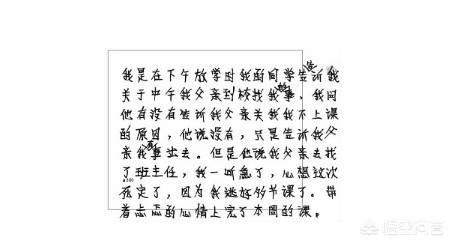 我是在下午放学时我的同学告诉我
关于中午我父亲到校找我事。我问
他有没有告诉我父亲关我不上课
的原因,他说没有,只是告诉我父
亲我出去。但是他说我父亲去找
了班主任,我一听急了,心想这次
死定了,因为我逃好多节课了。带
着忐忑的心情上完了本周的课。
悟空问答